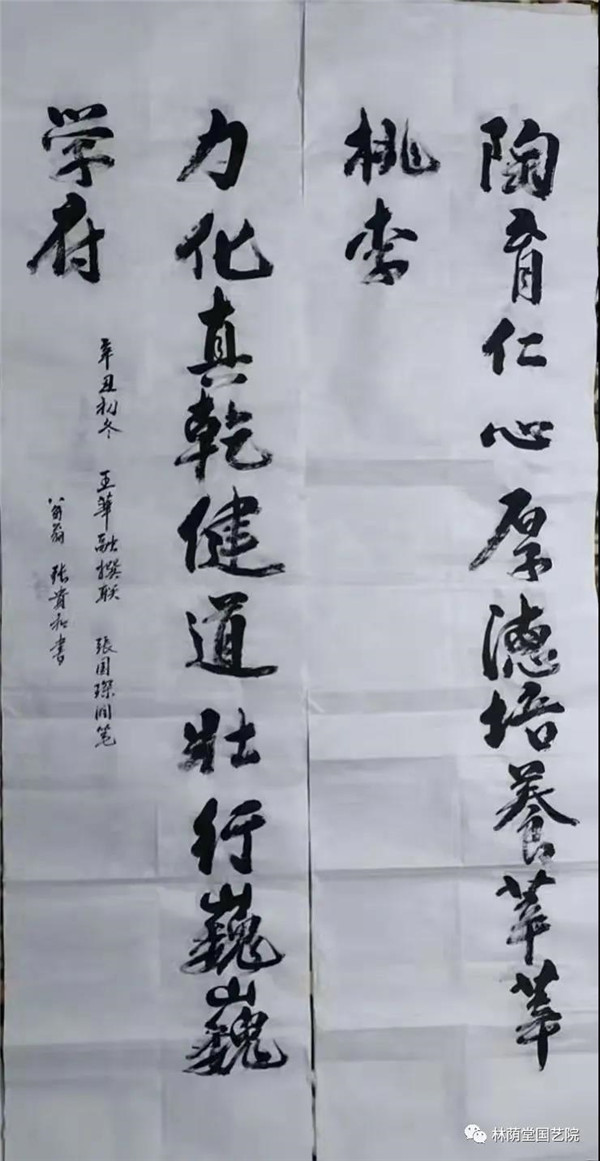 陶育仁心厚德培養莘莘
桃李
力化真乾健道壮行巍巍
学府
辛丑初冬 王華融撰联 張国琛润笔
翁翁 张貴和書
林荫堂国艺院